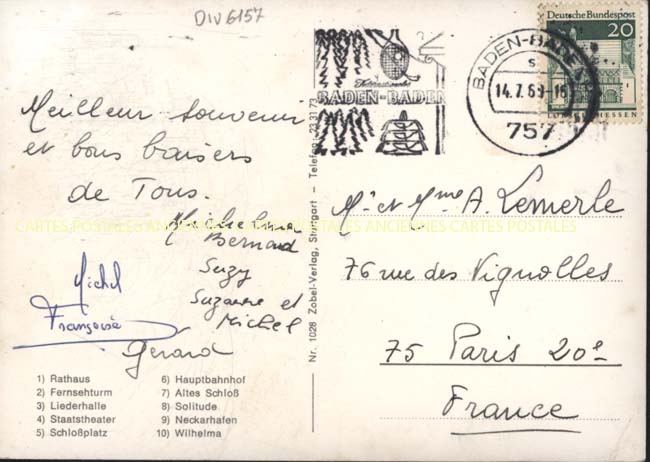 DIV 6157
Deutsche Bundespost
20
LORSCH/HESSEN
BADEN-BADEN
s
14.7.69-16
757
BADEN-BADEN
Meilleur souvenir
et bons baisers
de Tous.
Bernard
Suzy
Suzanne et
Michel
Michel
Françoise
Gérard
CARTES POSTALES ANCIENNES CARTES POSTALES ANCIENNES CARTES POSTALES
Mr et Mme A. Lemerle
76 rue des Vignolles
75 Paris 20e
France
Nr. 1028 Zobel-Verlag, Stuttgart - Telefon: 23 31 73
1) Rathaus
2) Fernsehturm
3) Liederhalle
4) Staatstheater
5) Schloßplatz
6) Hauptbahnhof
7) Altes Schloß
8) Solitude
9) Neckarhafen
10) Wilhelma